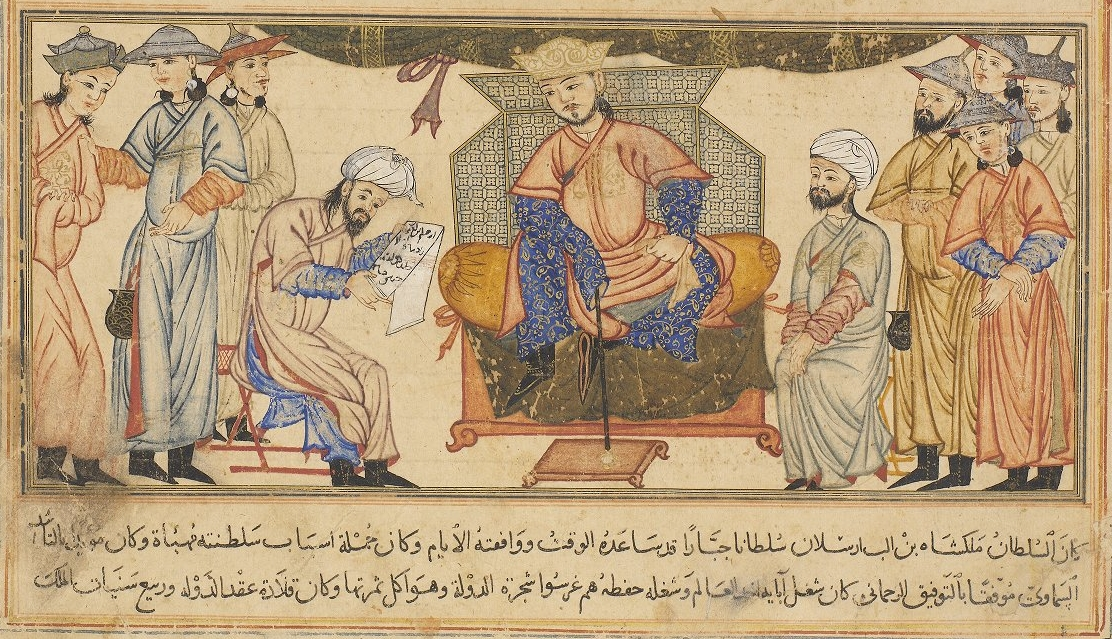 كان السلطان ملكشاه بن الب ارسلان سلطانا جبارا قد ساعده الوقت ووافقته الايام وكان جملة اسباب سلطنته مهيأة وكان مؤيدا بالتأييد
السماوي موفقا بالتوفيق الرحماني كان شغل آبايه العالم وشغله حفظه هم غرسوا شجرة الدولة وهو اكل ثمرتها وكان قلادة عقد الدولة وربيع سنيات الملك